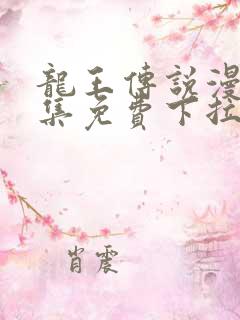 龍王傳説漫
集免費下拉
肖震